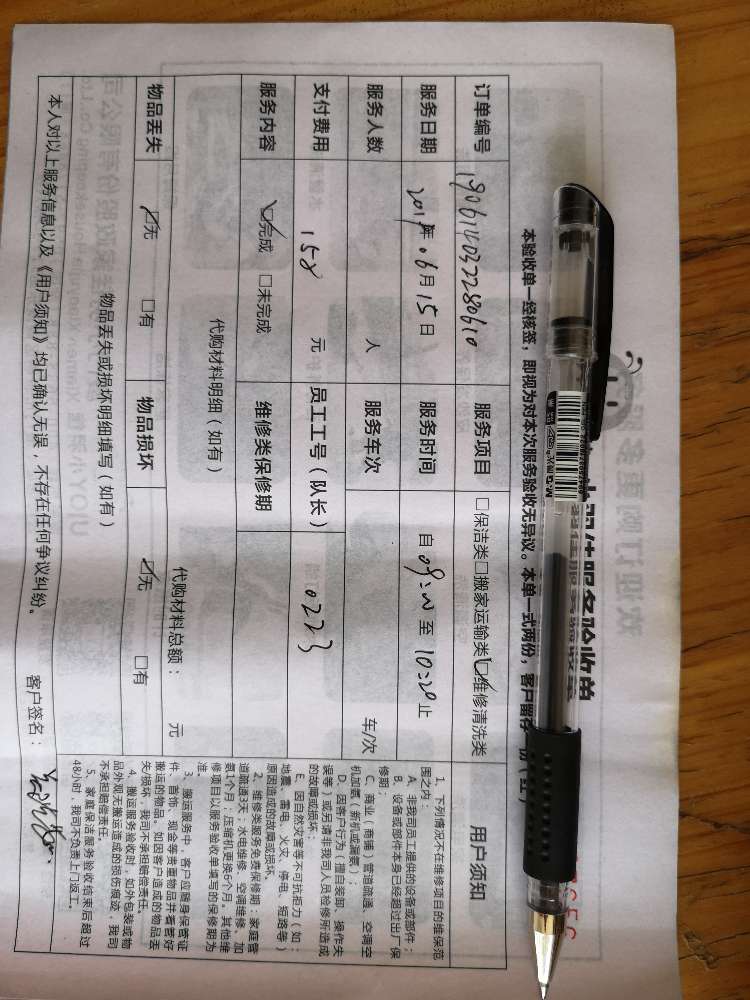 本验收单一经核签，即视为对本次服务验收无异议。本单一式两份，客户留存
订单编号 190614032280610 服务项目 □保洁类□搬家运输类☑维修清洗类
服务日期 2019年.06月15日 服务时间 自09:20至10:20止
服务人数 人 服务车次 车/次
支付费用 158 元 员工工号（队长） 0223
服务内容 ☑完成 □未完成 维修类保修期
代购材料明细（如有） 代购材料总额： 元
物品丢失 ☑无 □有 物品损坏 ☑无 □有
物品丢失或损坏明细填写（如有）
本人对以上服务信息以及《用户须知》均已确认无误，不存在任何争议纠纷。 客户签名：
用户须知
1、下列情况不在维修项目的维保范
围之内：
A、非我司员工提供的设备或部件；
B、设备或部件本身已经超过出厂保
修期；
C、商业（商铺）管道疏通、空调空
机加氨（新机或漏氨）；
D、因客户行为（擅自装卸、操作失
误等）或另请非我司人员检修所造成
的故障或损坏；
E、因自然灾害等不可抗拒力（如：
地震、雷电、火灾、停电、短路等）
原因造成的故障或损坏。
2、维修类服务免费保修期：家庭管
道疏通3天；水电维修、空调维修、加
氨1个月；压缩机更换6个月。其他维
修项目以服务验收单填写的保修期为
准。
3、搬运服务中，客户应随身保管证
件、首饰、现金等贵重物品并看管好
搬运的物品。如因客户造成的物品丢
失/损坏，我司不承担赔偿责任。
4、搬运服务验收时，如外包装或物
品外观无搬运造成的损伤痕迹，我司
不承担赔偿责任。
5、家庭保洁服务验收结束后超过
48小时，我司不负责上门返工。